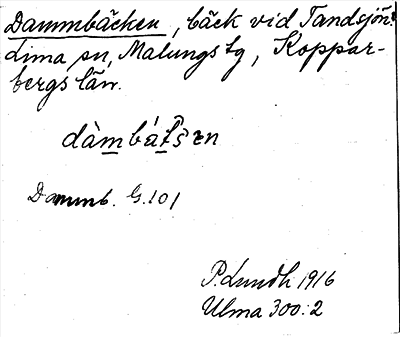 Dammbäcken, bäck vid Tandsjön
Lima sn, Malungs tg, Koppar-
bergs län.
dàmbátsen
Dammb. G. 101
P. Lundh 1916
Ulma 300:2